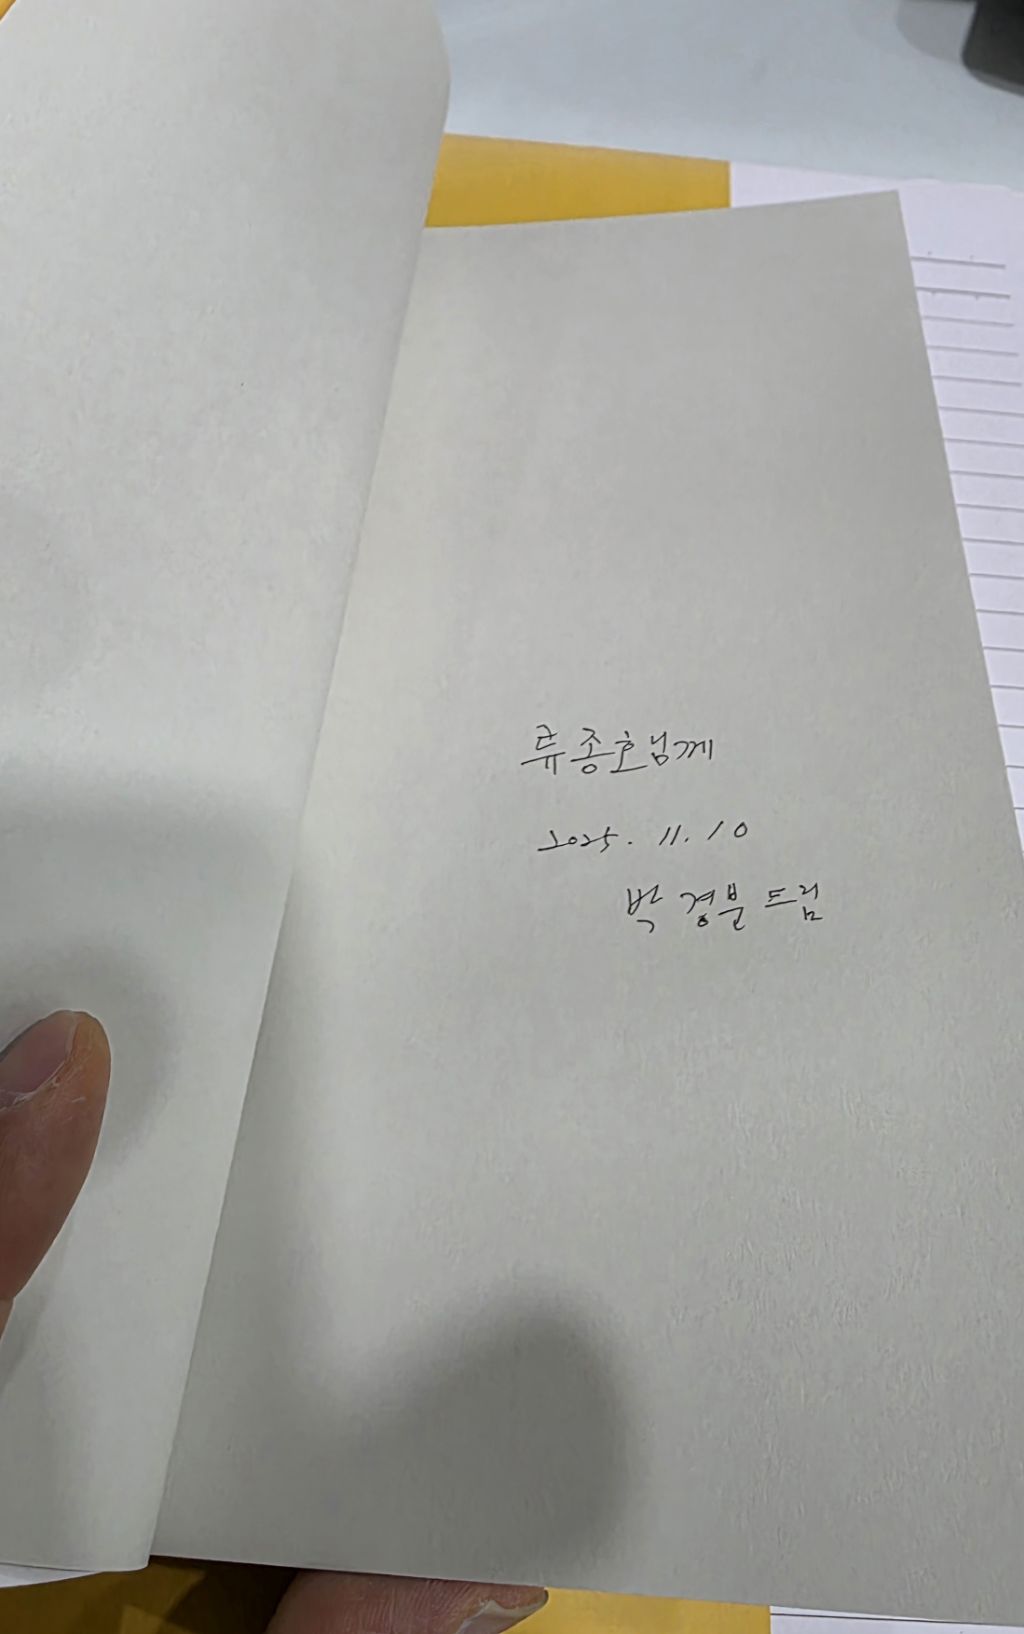 류종호님께
2025. 11. 10
박경분 드림